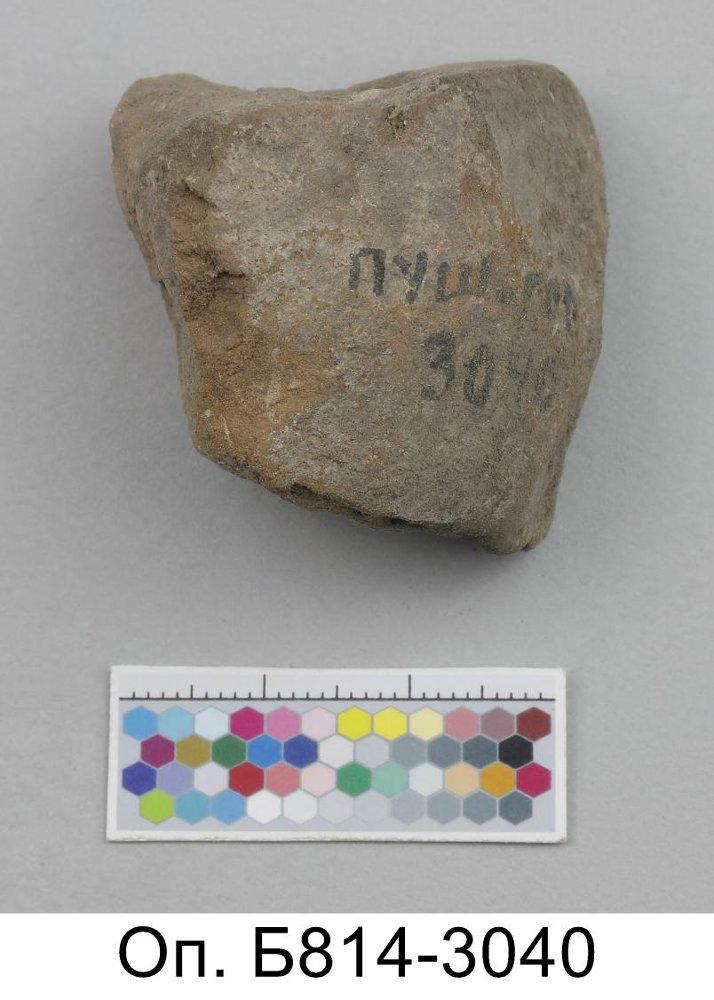 ПУШ.ГОР
3040
Оп. Б814-3040